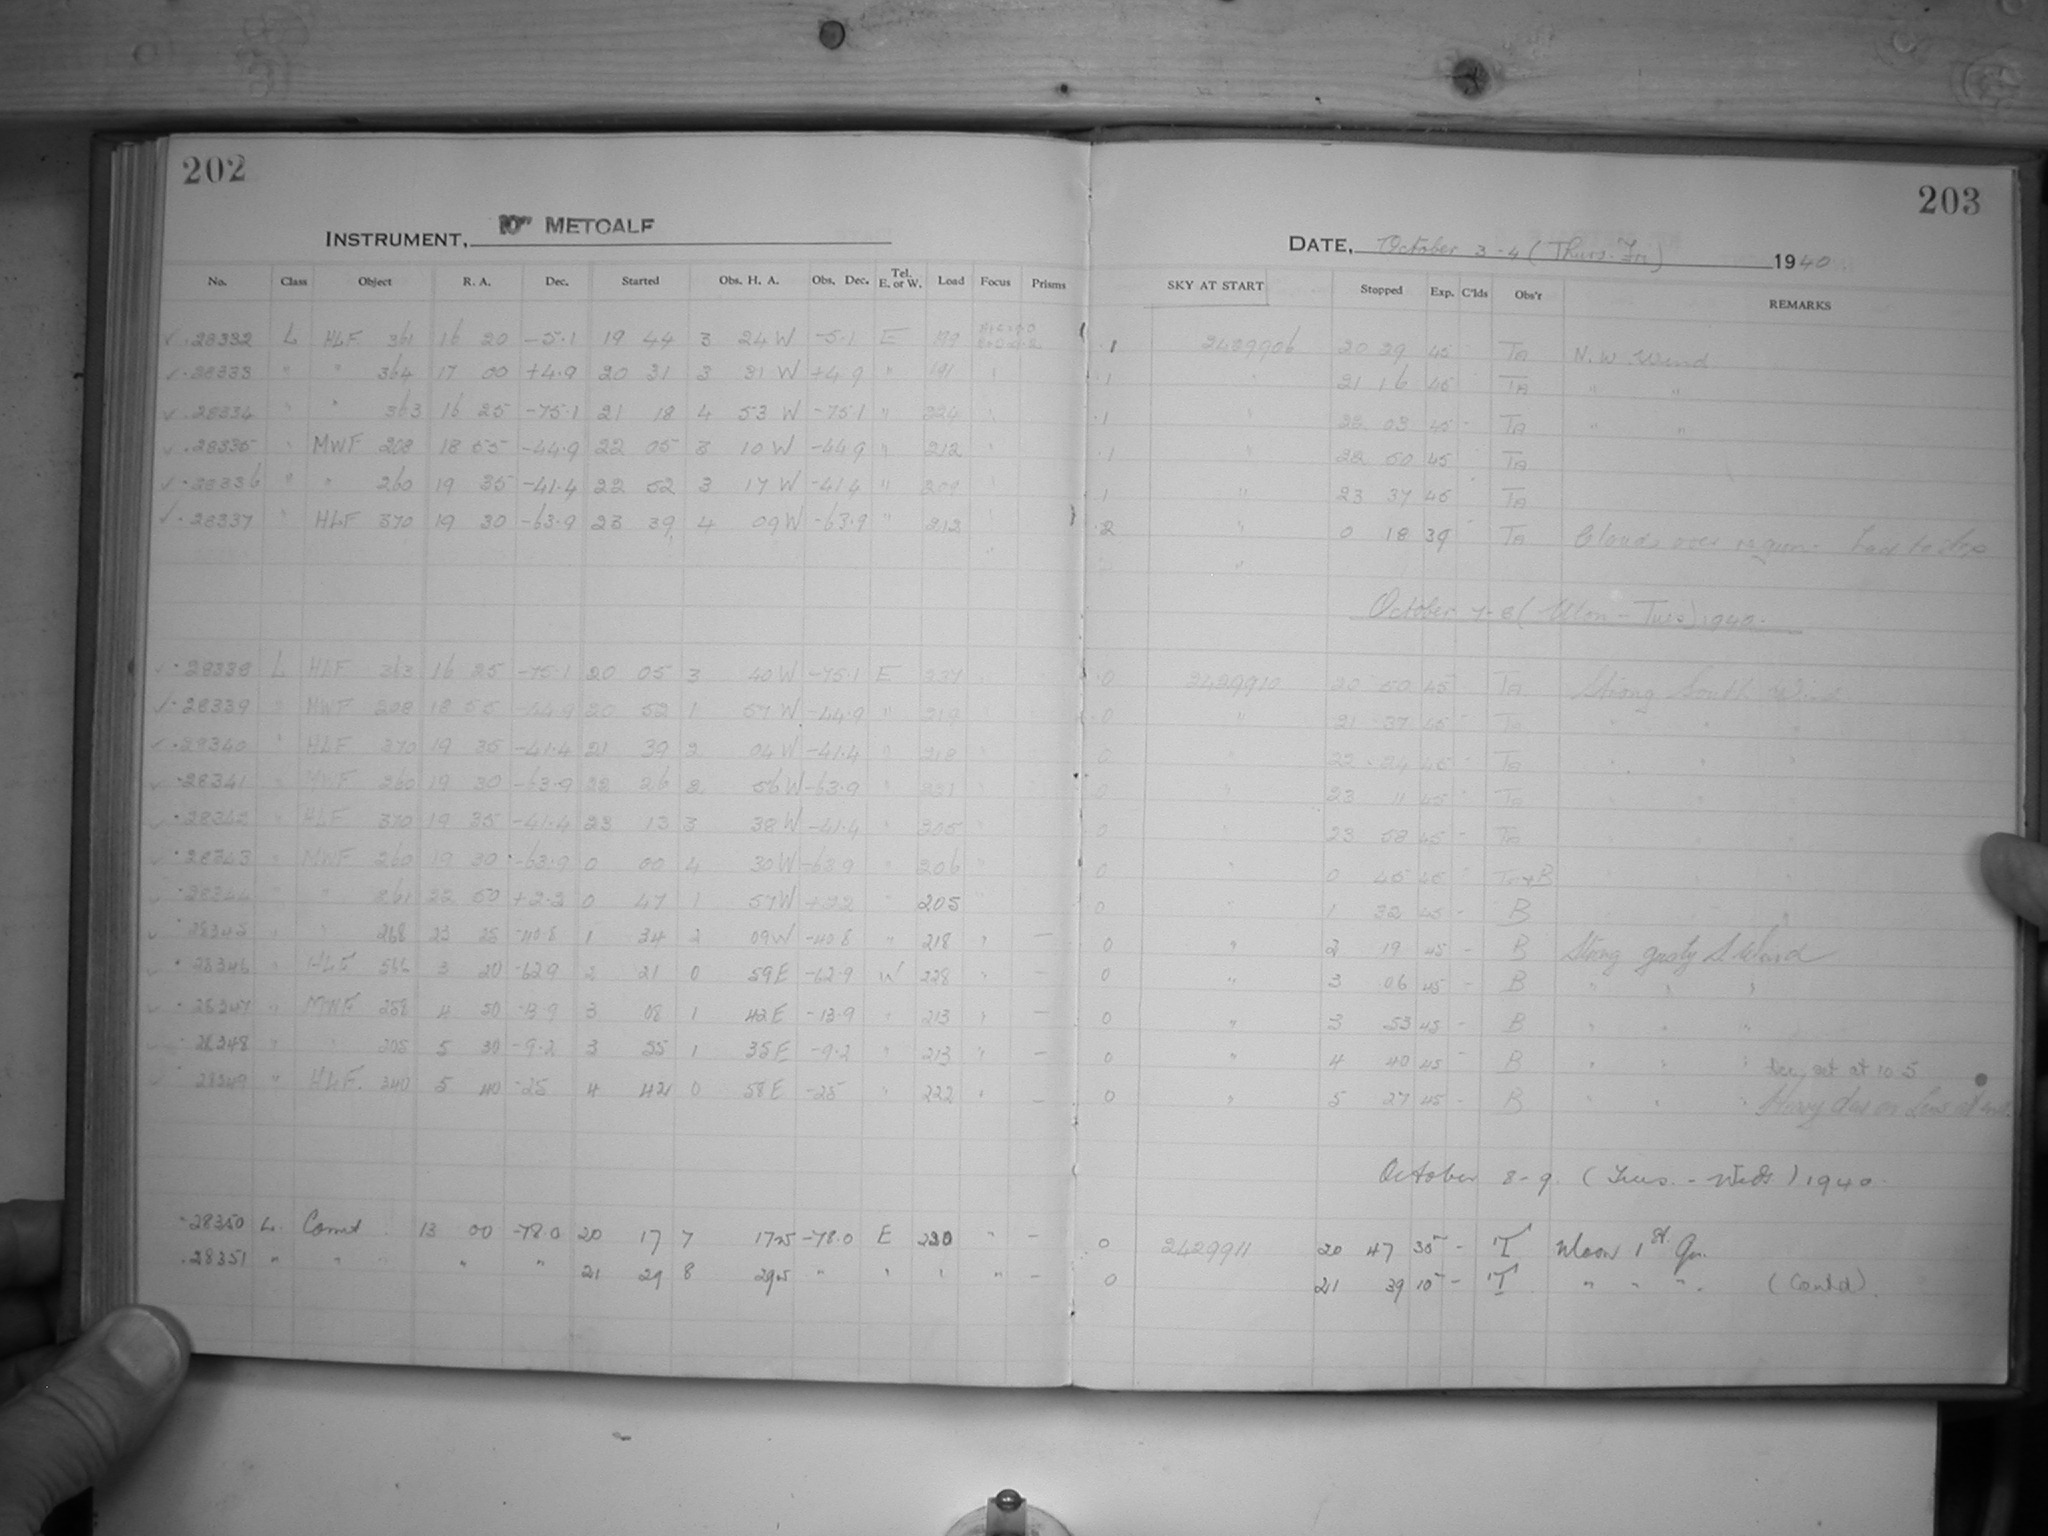 202
INSTRUMENT, 10" METCALF
No. Class Object R. A. Dec. Started Obs. H. A. Obs. Dec. Tel. E. or W. Load Focus Prisms
28332 L HLF 361 16 20 -5.1 19 44 3 24 W -5.1 E
28333 " " 364 17 00 +4.9 20 31 3 31 W +4.9 " 191
28334 " " 363 16 25 -75.1 21 18 4 53 W -75.1 " 224
28335 " MWF 208 18 55 -44.9 22 05 3 10 W -44.9 " 212
28336 " " 260 19 35 -41.4 22 52 3 17 W -41.4 " 209
28337 " HLF 370 19 30 -63.9 23 39 4 09 W -63.9 " 212
28338 L HLF 363 16 25 -75.1 20 05 3 40 W -75.1 E 237
28339 " MWF 208 18 55 -44.9 20 52 1 57 W -44.9 " 219
28340 " HLF 370 19 35 -41.4 21 39 2 04 W -41.4 " 218
28341 " MWF 260 19 30 -63.9 22 26 2 56 W -63.9 " 231
28342 " HLF 370 19 35 -41.4 23 13 3 38 W -41.4 " 205
28343 " MWF 260 19 30 -63.9 0 00 4 30 W -63.9 " 206
28344 " " 261 22 50 +2.2 0 47 1 57 W +2.2 " 205
28345 " " 268 23 25 -40.8 1 34 2 09 W -40.8 " 218 " —
28346 " HLF 3 20 -62.9 2 21 0 59 E -62.9 W 228 " —
28347 " MWF 258 4 50 -13.9 3 08 1 42 E -13.9 " 213 " —
28348 " " 205 5 30 -9.2 3 55 1 35 E -9.2 " 213 " —
28349 " HLF. 340 5 40 -25 4 42 0 58 E -25 " 222 " —
28350 L. Comet 13 00 -78.0 20 17 7 17 -78.0 E 220 " —
28351 " " " " 21 29 8 29 " " " " —
203
DATE, October 3-4 (Thurs-Fri) 1940
SKY AT START Stopped Exp. C'lds Obs'r REMARKS
.1 2429906 20 29 45 TA N.W. Wind
.1 " 21 16 45 TA " "
.1 " 22 03 45 - TA " "
.1 " 22 50 45 TA
1 " 23 37 45 TA
.2 " 0 18 39 - TA Clouds over region. Had to stop
October 7-8 (Mon - Tues) 1940.
.0 2429910 20 50 45 TA Strong South Wind
0 " 21 37 45 - TA " " "
0 " 22 24 45 - TA " " "
0 " 23 11 45 TA " " "
0 " 23 58 45 - TA " " "
0 " 0 45 45 TA+B " " "
0 " 1 32 45 - B "
0 " 2 19 45 - B Strong gusty S Wind
0 " 3 06 45 - B " " "
0 " 3 53 45 - B " " "
0 " 4 40 45 - B " " " Dec. set at 10.5
0 " 5 27 45 - B " " " Heavy dew on Lens at end.
October 8-9. (Tues. - Weds) 1940.
0 2429911 20 47 30 - T Moon 1st Qr.
0 21 39 10 - T " " ". (Contd).